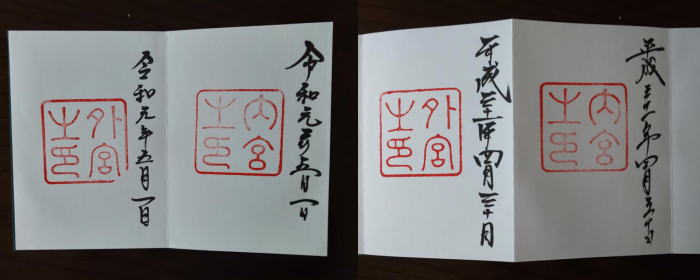 令和元年五月一日
外宮
之印
令和元年五月一日
内宮
之印
平成三十一年四月三十日
外宮
之印
平成三十一年四月三十日
内宮
之印